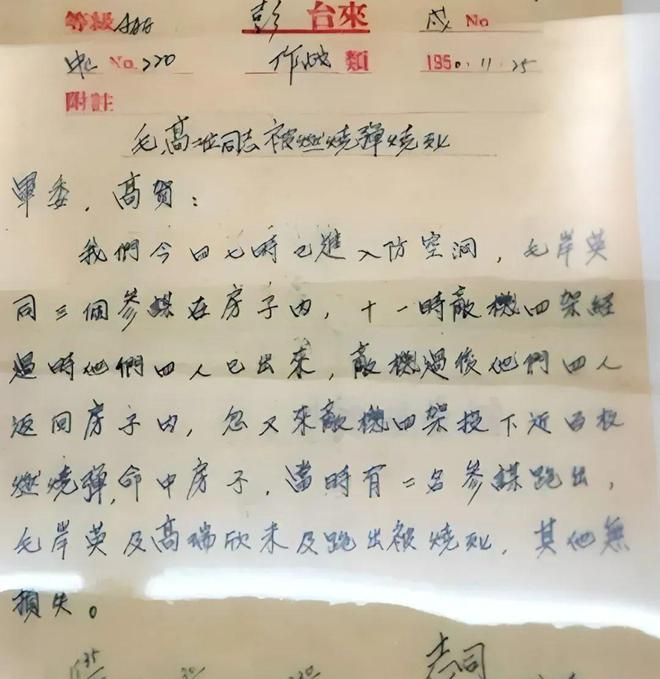 等級AAA 彭 台來 戍 No
No. 220 作战 類 1950.11.25
附註
毛、高二位同志被燃燒彈燒死
軍委，高賀：
我們今日七時已進入防空洞，毛岸英
同三個參謀在房子內，十一時敵機四架經
過時他們四人已出來，敵機過後他們四人
返回房子內，忽又來敵機四架投下近百枚
燃燒彈，命中房子，當時有二名參謀跑出，
毛岸英及高瑞欣未及跑出被燒死，其他無
損失。
志司